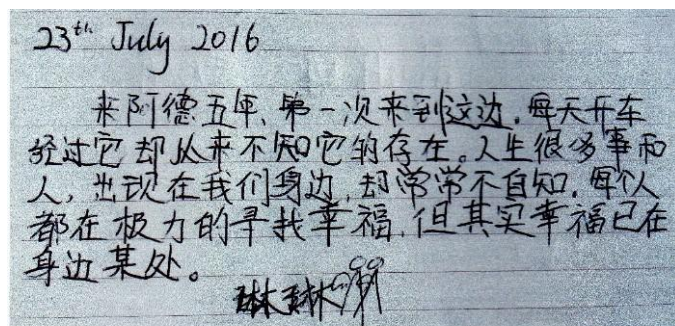 23th July 2016
来阿德五年,第一次来到这边.每天开车
经过它却从来不知它的存在。人生很多事和
人,出现在我们身边,却常常不自知.每个人
都在极力的寻找幸福,但其实幸福已在
身边某处。
琳琳